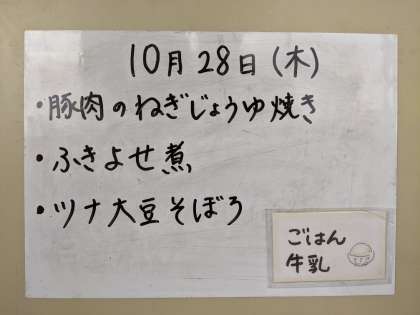 10月28日(木)
・豚肉のねぎじょうゆ焼き
・ふきよせ煮
・ツナ大豆そぼろ
ごはん
牛乳